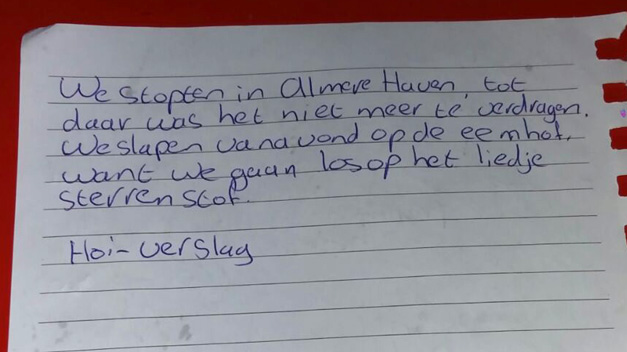 We stopten in Almere Haven, tot
daar was het niet meer te verdragen.
We slapen vanavond op de eemhof,
want we gaan los op het liedje
sterrenstof.
Hoi-verslag